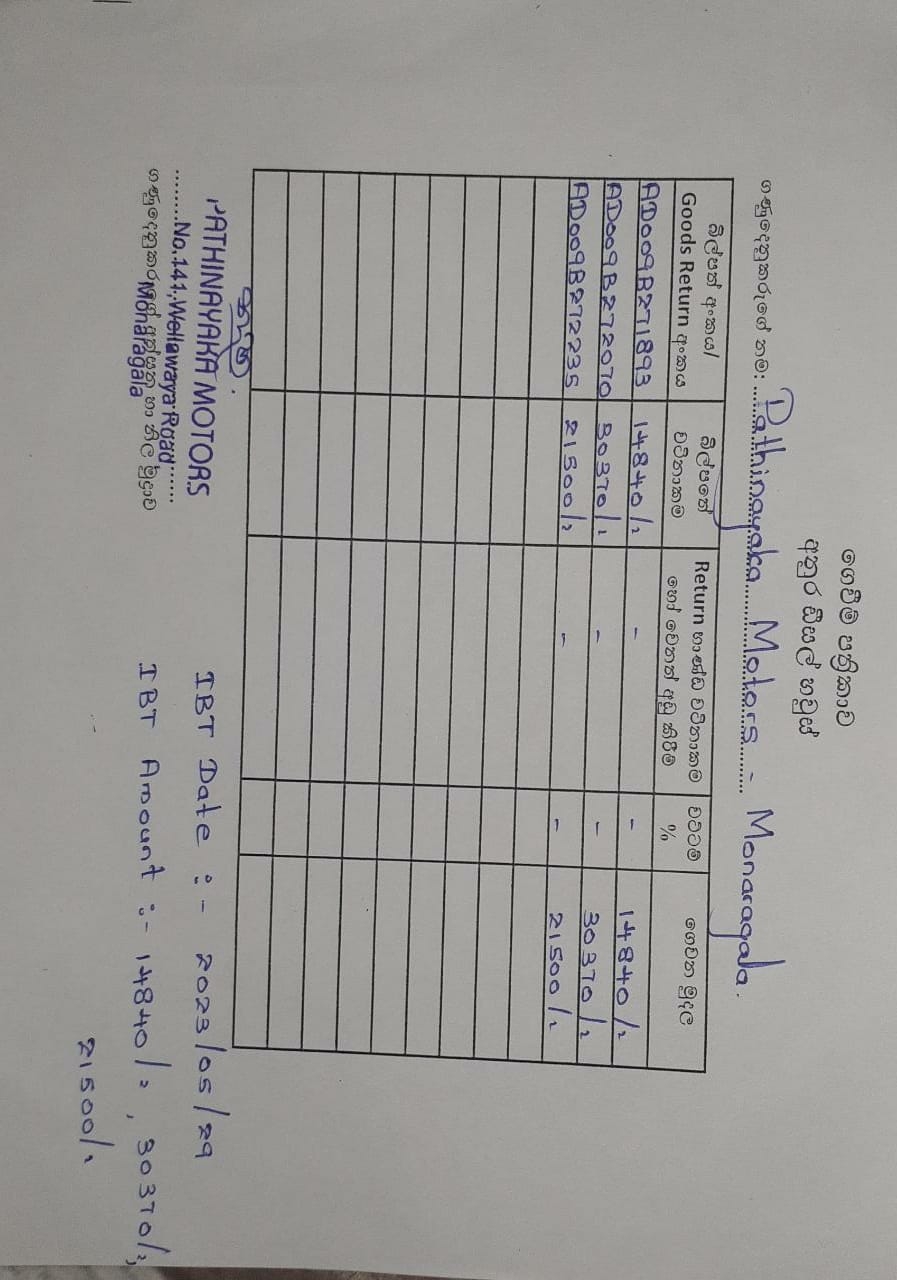 ගෙවීම් පත්‍රිකාව
අනුර ඩීසල් හවුස්
ගණුදෙනුකරුගේ නම: Pathinayaka Motors - Monaragala.
බිල්පත් අංකය/ Goods Return අංකය | බිල්පතේ වටිනාකම | Return භාණ්ඩ වටිනාකම හෝ වෙනත් අඩු කිරීම් | වට්ටම් % | ගෙවන මුදල
AD009B271893 | 14840/= | - | - | 14840/=
AD009B272070 | 30370/= | - | - | 30370/=
AD009B272235 | 21500/= | - | - | 21500/=
PATHINAYAKA MOTORS
No.141, Wellawaya Road
Monaragala
ගණුදෙනුකරුගේ අත්සන හා නිල මුද්‍රාව
IBT Date :- 2023/05/29
IBT Amount :- 14840/=, 30370/=,
21500/=